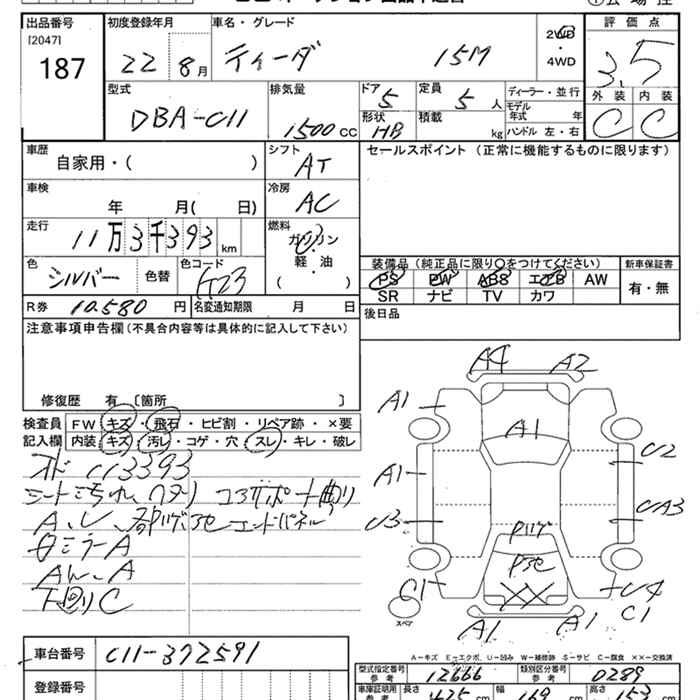 出品番号 初度登録年月 車名・グレード 2WD・4WD 評価点
[2047]
187 22 8月 ティーダ 15M 3.5
外装 内装
C C
型式 排気量 ドア 定員 ディーラー・並行
DBA-C11 1500cc 5 5人 モデル年式 年
形状 HB 積載 kg ハンドル 左・右
車歴 シフト セールスポイント (正常に機能するものに限ります)
自家用・( ) AT
車検 冷房
年 月( 日) AC
走行 燃料
11万3千393km ガソリン
軽・油
( )
色 色替 色コード
シルバー K23
装備品 (純正品に限り○をつけてください) 新車保証書
PS PW ABS エアB AW 有・無
SR ナビ TV カワ
R券 10.580円 名変通知期限 月 日
後日品
注意事項申告欄 (不具合内容等は具体的に記入して下さい)
修復歴 有 [箇所 ]
検査員 FW キズ・飛石・ヒビ割・リペア跡・×要
記入欄 内装 キズ・汚レ・コゲ・穴・スレ・キレ・破レ
113393
シート汚れ コアサポート曲り
エンドパネル
ミラーA
下回りC
A4 A2
A1
A1
A1 U2
U3 UA3
C1 U4
C1
XX
A1 A1
スペア
A-キズ E-エクボ U-凹み W-補修跡 S-サビ C-腐食 ××-交換済
車台番号 C11-372591
登録番号
型式指定番号 参考 12666 類別区分番号 参考 0289
車庫証明用 参考 長さ 幅 169 高さ